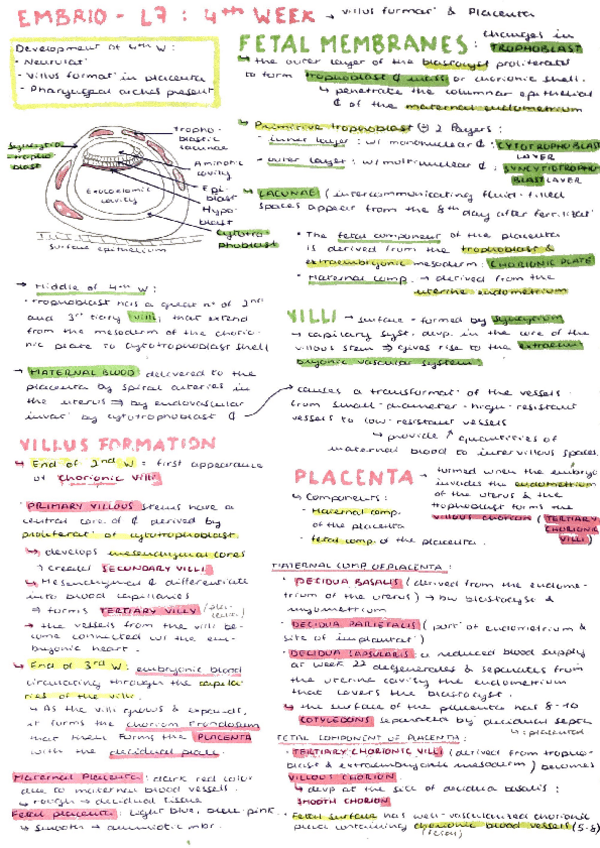 EMBRIO - L7 : 4th WEEK → villus format' & Placenta
Development of 4th W :
- Neurulat'
- Villus format' in placenta
- Pharyngeal arches present
Syncytio-
tropho
blast
tropho-
blastic
lacunae
Amniotic
cavity
Epi-
blast
Hypo-
blast
Cytotro-
phoblast
Exocoelomic
cavity
Surface epithelium
→ Middle of 4th W :
· trophoblast has a great nº of 2nd
and 3rd tiary villi that extend
from the mesoderm of the chorio-
nic plate to cytotrophoblast shell
→ MATERNAL BLOOD delivered to the
placenta by spiral arteries in
the uterus ⇒ by endovascular
invas' by cytotrophoblast ₵
VILLUS FORMATION
↳ End of 2nd W : first appearance
of chorionic villi
· PRIMARY VILLOUS stems have a
central core of ₵ derived by
proliferat' of cytotrophoblast.
↳ develops mesenchymal cores
↳ creates SECONDARY VILLI
↳ Mesenchymal ₵ differentiate
into blood capillaries
→ forms TERTIARY VILLY
→ the vessels from the villi be-
come connected w/ the em-
bryonic heart.
↳ End of 3rd W : embryonic blood
circulating through the capilla-
ries of the villi.
↳ As the villi grows & expands,
it forms the chorion frondosum
that then forms the PLACENTA
with the decidual plate.
Maternal Placenta : dark red color
due to maternal blood vessels.
↳ rough → decidual tissue
Fetal placenta : light blue, blue-pink
↳ smooth → amniotic mbr.
FETAL MEMBRANES : changes in
TROPHOBLAST
↳ the outer layer of the blastocyst proliferates
to form trophoblast ₵ mass or chorionic shell.
↳ penetrate the columnar epithelial
₵ of the maternal endometrium
↳ Primitive trophoblast 2 layers :
· inner layer : w/ mononuclear ₵ : CYTOTROPHOBLAST
LAYER
· outer layer : w/ multinuclear ₵ : SYNCYTIOTROPHO
BLAST LAYER
↳ LACUNAE (intercommunicating fluid-filled
spaces appear from the 8th day after fertilizat'
· The fetal component of the placenta
is derived from the trophoblast &
extraembryonic mesoderm : CHORIONIC PLATE
· Maternal comp. → derived from the
uterine endometrium
VILLI → surface - formed by syncytium
→ capillary syst. devp. in the core of the
villous stem ⇒ gives rise to the extraem-
bryonic vascular system
→ causes a transformat' of the vessels
from small-diameter-high-resistant
vessels to low-resistant vessels
↳ provide ↑ quantities of
maternal blood to intervillous spaces.
PLACENTA → formed when the embryo
invades the endometrium
of the uterus & the
trophoblast forms the
villous chorion (TERTIARY
CHORIONIC
VILLI)
↳ Components :
· Maternal comp.
of the placenta
· fetal comp. of the placenta.
MATERNAL COMP OF PLACENTA :
· DECIDUA BASALIS (derived from the endome-
trium of the uterus) → bw blastocyst &
myometrium
· DECIDUA PARIETALIS (port' of endometrium ≠
site of implantat')
· DECIDUA CAPSULARIS → reduced blood supply
at week 22 degenerates & separates from
the uterine cavity the endometrium
that covers the blastocyst.
↳ the surface of the placenta has 8-10
COTYLEDONS separated by decidual septa
FETAL COMPONENT OF PLACENTA :
· TERTIARY CHORIONIC VILLI (derived from tropho-
blast & extraembryonic mesoderm) becomes
VILLOUS CHORION.
↳ devp at the site of decidua basalis :
SMOOTH CHORION
· Fetal surface has well-vascularized chorionic
plate containing chorionic blood vessels (5-8)